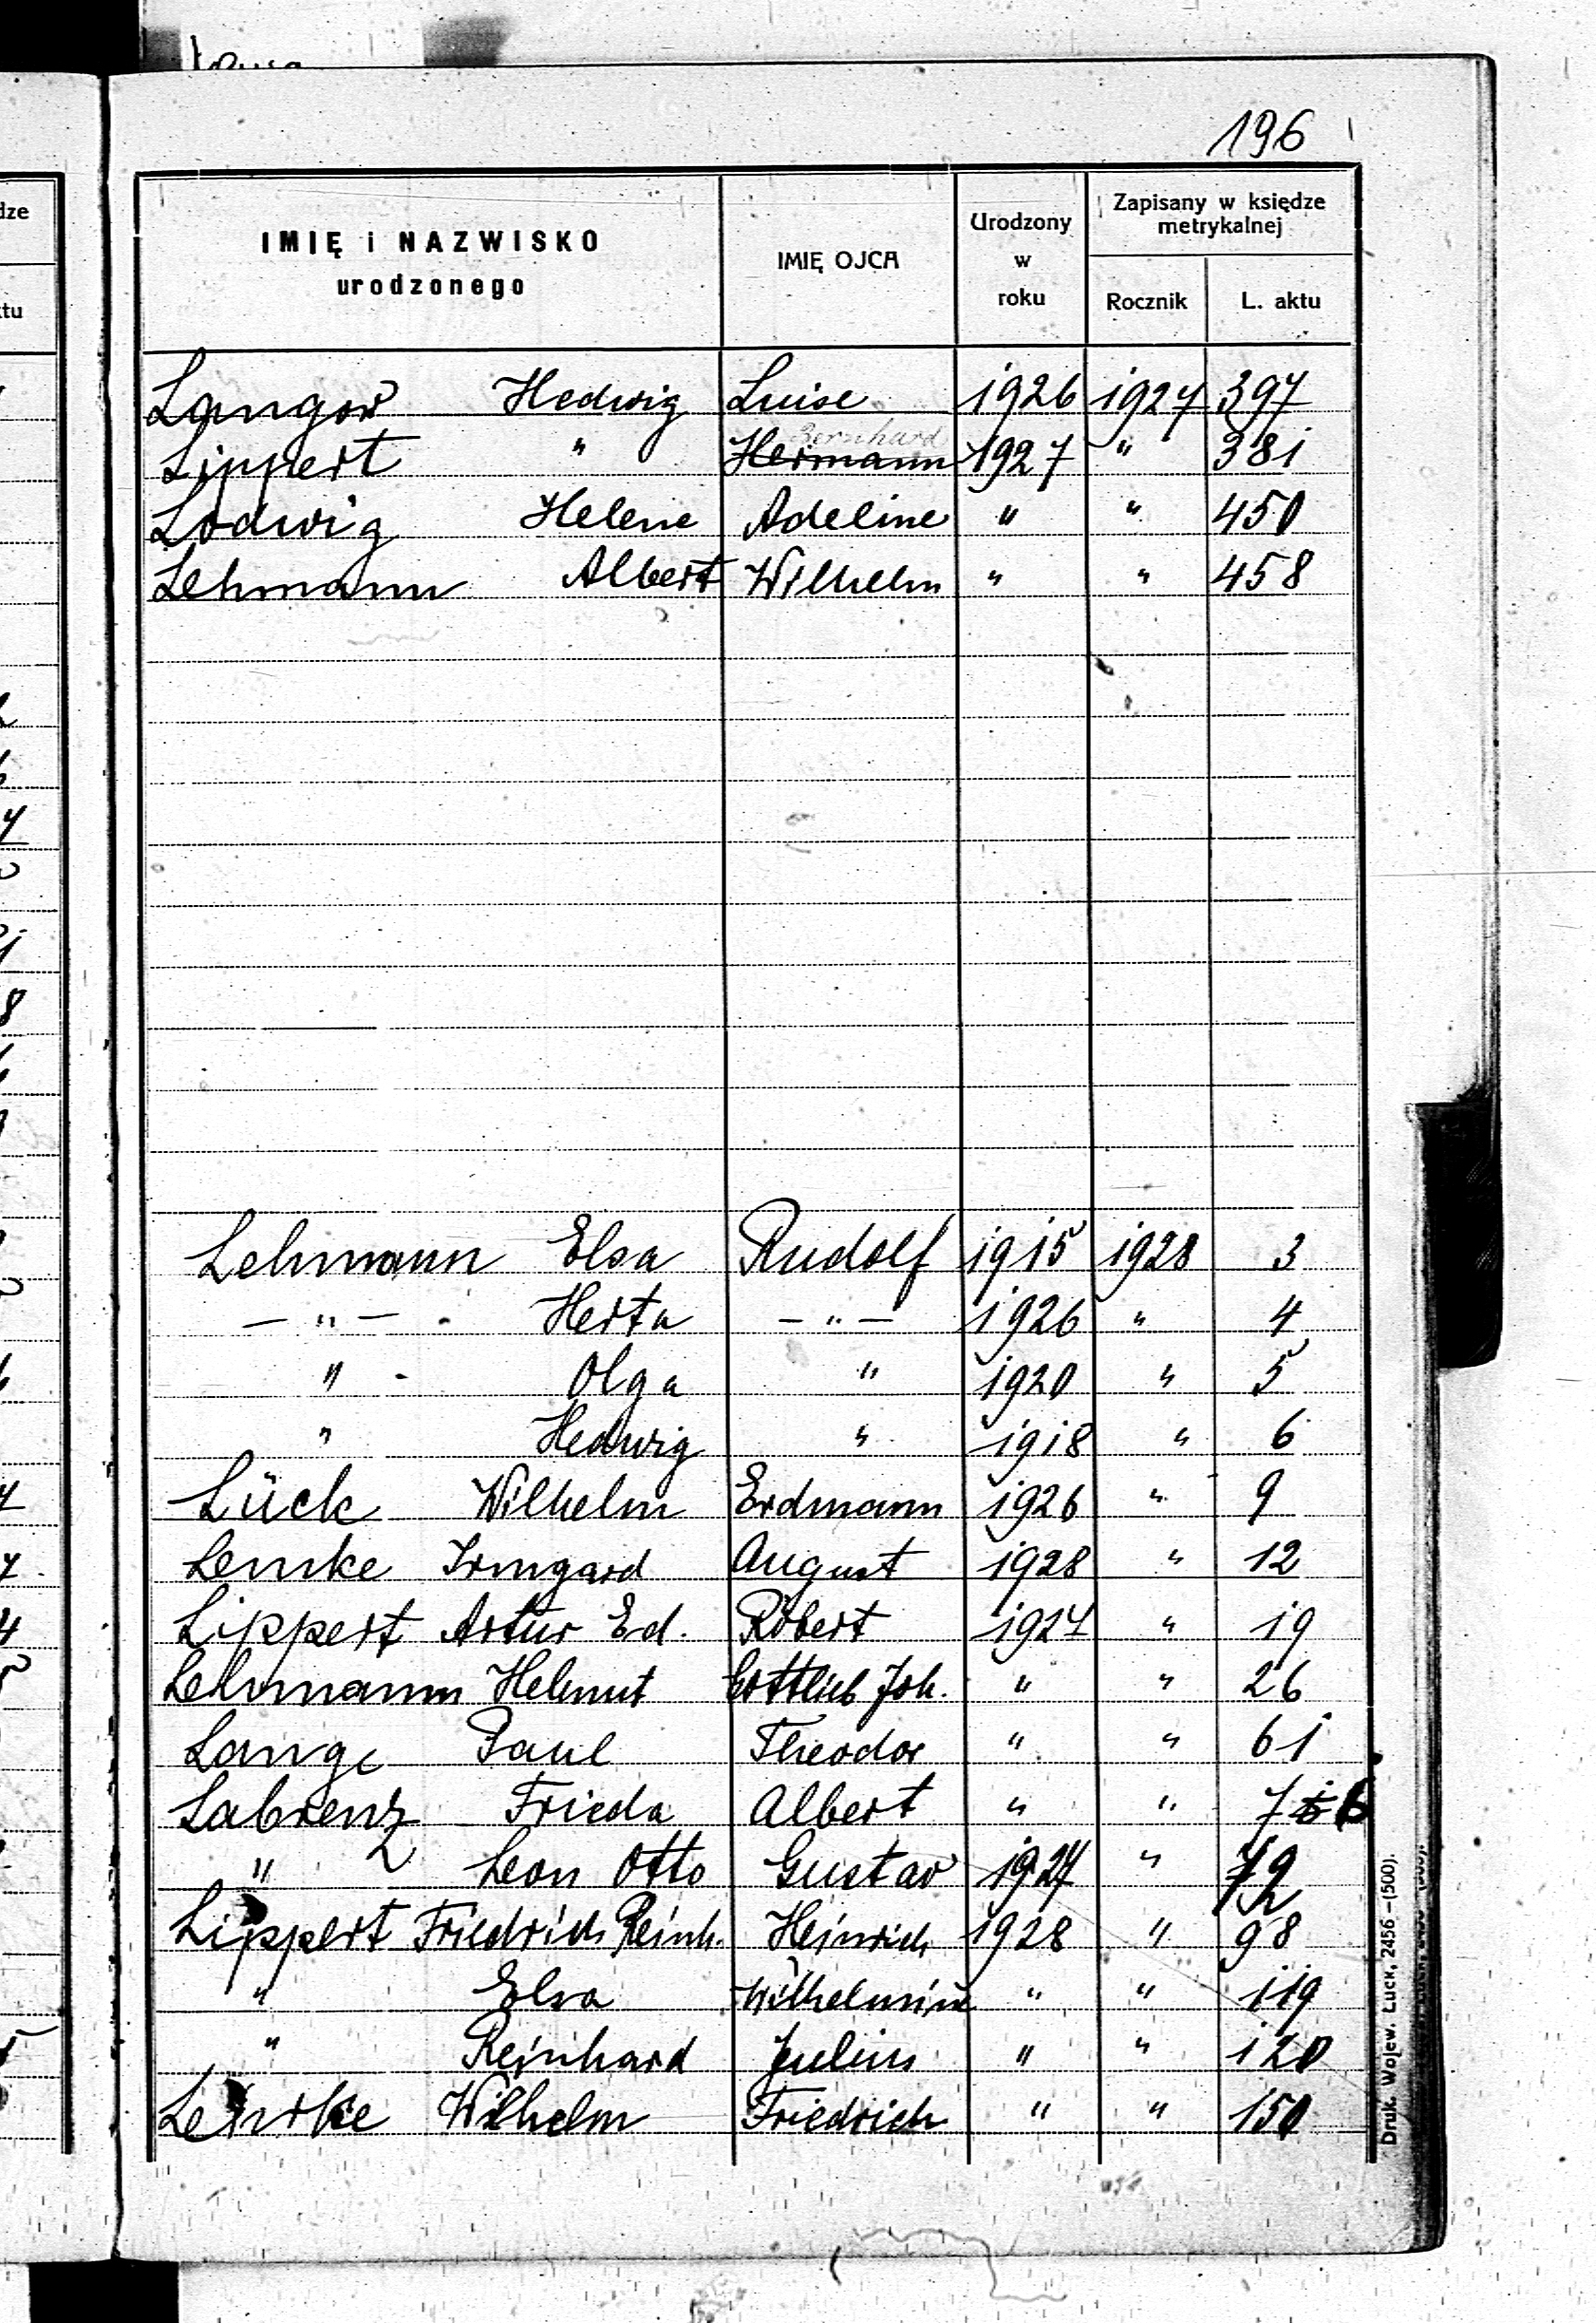 196
IMIĘ i NAZWISKO urodzonego | IMIĘ OJCA | Urodzony w roku | Zapisany w księdze metrykalnej
Rocznik | L. aktu
Langow Hedwig | Luise | 1926 | 1927 | 397
Bernhard
Lippert " | Hermann | 1927 | " | 381
Lodwig Helene | Adeline | " | " | 450
Lehmann Albert | Wilhelm | " | " | 458
Lehmann Elsa | Rudolf | 1915 | 1928 | 3
— " — Herta | — " — | 1926 | " | 4
" - Olga | " | 1920 | " | 5
" Hedwig | " | 1918 | " | 6
Lück Wilhelm | Erdmann | 1926 | " | 9
Lemke Irmgard | August | 1928 | " | 12
Lippert Artur Ed. | Robert | 1927 | " | 19
Lehmann Helmut | Gottlieb Joh. | " | " | 26
Lange Paul | Theodor | " | " | 61
Labrenz Frieda | Albert | " | " | 76
" Leon Otto | Gustav | 1927 | "
Lippert Friedrich Reinh. | Heinrich | 1928 | " | 98
" Elsa | Wilhelmine | " | " | 119
" Reinhard | Julius | " | " | 120
Wilhelm | Friedrich | " | " | 150
Druk. Wojew. Łuck, 2456 –(500).